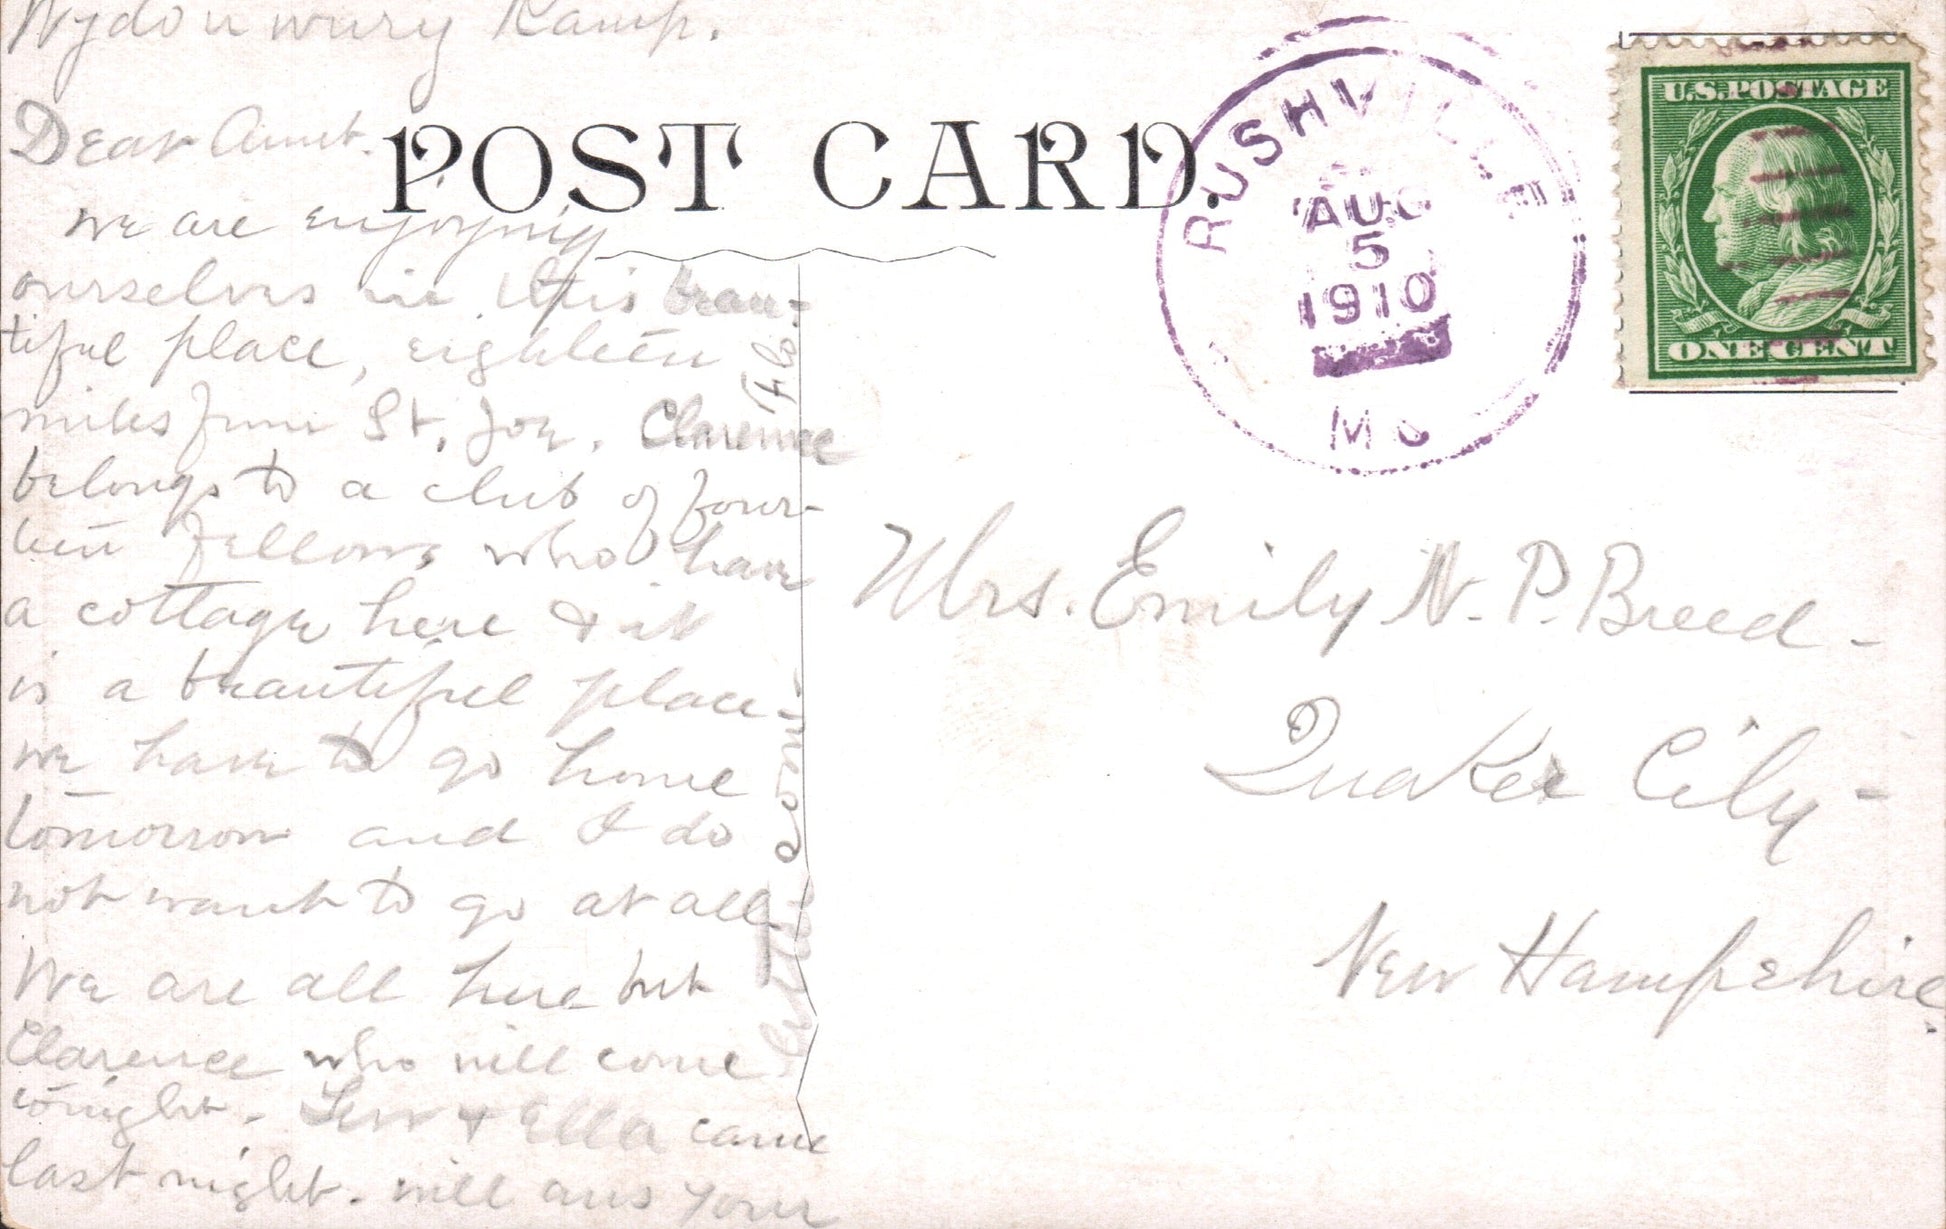 Wydounwury Kamp.
Dear Aunt.
We are enjoying
ourselves in this beau-
tiful place, eighteen
miles from St. Joe. Clarence
belongs to a club of four-
teen fellows who have
a cottage here & it
is a beautiful place-
we have to go home
tomorrow and I do
not want to go at all.
We are all here but
Clarence who will come
tonight. Lew & Ella came
last night. will ans your
letter soon.
POST CARD.
RUSHVILLE
AUG
5
1910
MO
U.S. POSTAGE
ONE CENT
Mrs. Emily N. P. Breed-
Quaker City-
New Hampshire.